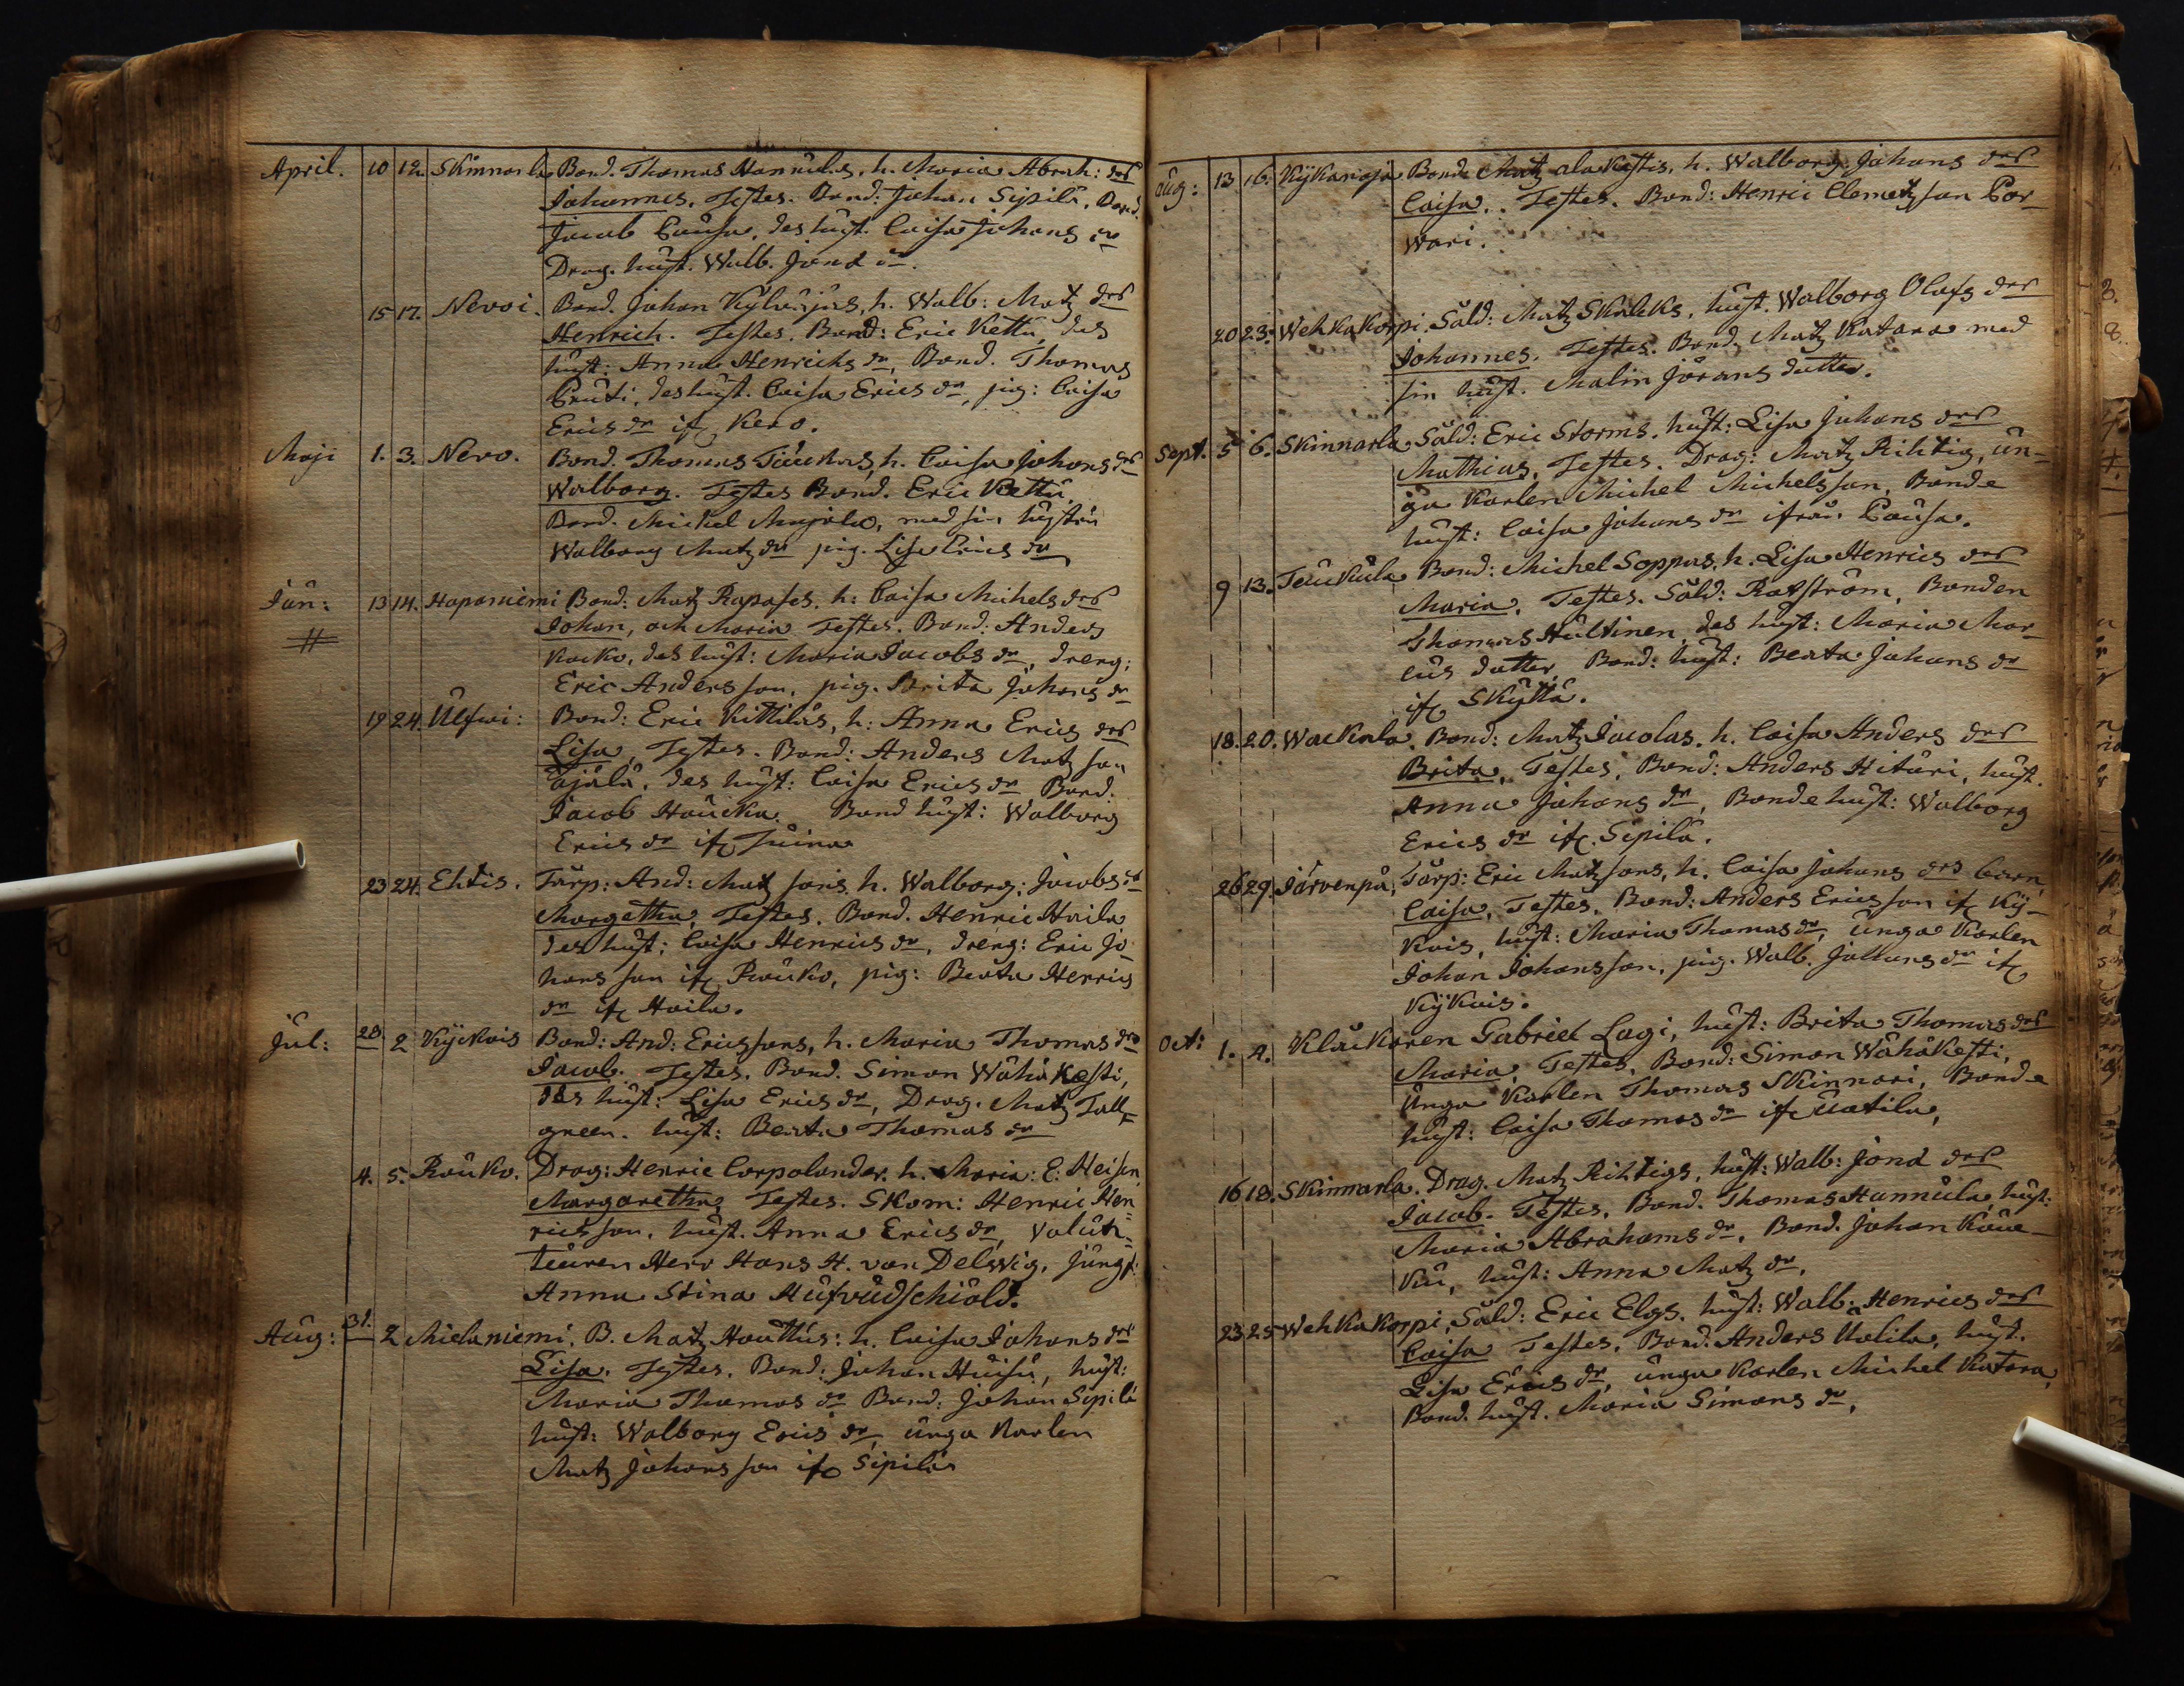 April. 10 12. Skinnarla Bond. Thomas Hannulas, h. Maria Abrah: drs
Johannes. Testes. Bond: Johan Sipilä, Bond.
Jacob Pausa, des hust. Caisa Johans dr
Drag. hust. Walb. Jona dr.
15 17. Nervoi. Bond. Johan Kyläojas, h. Walb: Matz drs
Henrich. Testes. Bond: Eric Kettu, des
hust: Anna Henrichs dr, Bond. Thomas
Pruti, des hust. Caisa Erics dr, pig: Caisa
Erics dr if Kero.
Maji 1. 3. Nervo. Bond. Thomas h. Caisa Johans drs
Walborg. Testes Bond. Eric Kettu,
Bond. Michel Anjala, med sin hustru
Walborg Matz dr pig. Lisa Erics dr
Jun: 13 14. Haponiemi Bond: Matz Rapases, h: Caisa Michels drs
Johan, och Maria Testes. Bond: Anders
Kocko, des hust: Maria Jacobs dr, dreng:
Eric Anders son, pig. Brita Johans dr
19 24. Ulfwi: Bond: Eric Kittiläs, h: Anna Erics drs
Lisa, Testes. Bond: Anders Matz son
Äijälä, des hust: Caisa Erics dr Bond:
Jacob Haucka. Bond hust: Walborg
Erics dr if Juina
23 24. Ehtis. Tårp: And: Matz sons h. Walborg: Jacobs dr
Margetha, Testes. Bond. Henric Haila
des hust: Caisa Henrics dr, dreng: Eric Jo-
hans son if Rauko, pig: Beata Henrics
dr if Haila.
Jul: 28 2 Kyckois Bond: And: Ericssons, h. Maria Thomas drs
Jacob. Testes. Bond. Simon Wähäkesti,
des hust: Lisa Erics dr, Drag. Matz Tall-
green. hust: Beata Thomas dr
4. 5. Rauko. Drag: Henric Corpolander. h. Maria: E: Heisen,
Margaretha, Testes. Skom: Henric Hen-
rics son. hust. Anna Erics dr, Volun-
teuren Herr Hans H. von Delwig, Jungf:
Anna Stina Hufvudschiöld.
Aug: 31. 2 Mielaniemi. B. Matz Hauttus: h. Caisa Johans dr
Lisa. Testes. Bond: Johan Huisu, hust:
Maria Thomas dr Bond: Johan Sipilä
hust: Walborg Erics dr, unga Karlen
Matz Johans son if Sipilä
Aug: 13 16. Kykänoja Bond: Matz ala Kestis, h. Walborg: Johans drs
Caisa. Testes. Bond: Henric Clemetz son Por-
wari.
20 23. Wehkakorpi. Såld: Matz Skalks, hust. Walborg Olofs drs
Johannes. Testes. Bond. Matz Katara med
sin hust. Malin Jörans dutter.
Sept. 5 6. Skinnarla Såld: Eric Storms. hust: Lisa Johans drs
Mathias, Testes. Drag: Matz Rihtig, un-
ga Karlen Michel Michelsson, Bonde
hust: Caisa Johans dr ifrån Pausa.
9 13. Jeukula Bond: Michel Soppas. h. Lisa Henrics drs
Maria. Testes. Såld: Rotström, Bonden
Thomas Hultinen, des hust: Maria Mar-
cus dutter, Bond: hust: Beata Johans dr
if Skyttä.
18. 20. Wackala. Bond: Matz Jacolas. h. Caisa Anders drs
Brita, Testes, Bond: Anders Hituri, hust.
Anna Johans dr, Bonde hust: Walborg
Erics dr if Sipilä.
26 29. Järvenpä, Tårp: Eric Matz sons, h. Caisa Johans drs barn,
Caisa, Testes, Bond: Anders Ericsson if Ky-
kois, hust: Maria Thomas dr, unga Karlen
Johan Johansson, pig. Walb. Johans dr if
Kykois.
Oct: 1. 4. Klåckaren Gabriel Lagi, hust: Brita Thomas drs
Maria, Testes, Bond: Simon Wähäkesti,
Unga Karlen Thomas Skinnari, Bonde
hust: Caisa Thomas dr if Uotila,
16 18. Skinnarla. Drag. Matz Rihtigs, hust: Walb: Jona drs
Jacob. Testes. Bond. Thomas Hannula, hust:
Maria Abrahams dr, Bond. Johan
hust: Anna Matz dr.
23 25 Wehkakorpi, Såld: Eric Elgs. hust: Walb: Henrics drs
Caisa Testes. Bond. Anders Uotila, hust.
Lisa Erics dr, unga Karlen Michel Katara,
Bond. hust. Maria Simons dr.